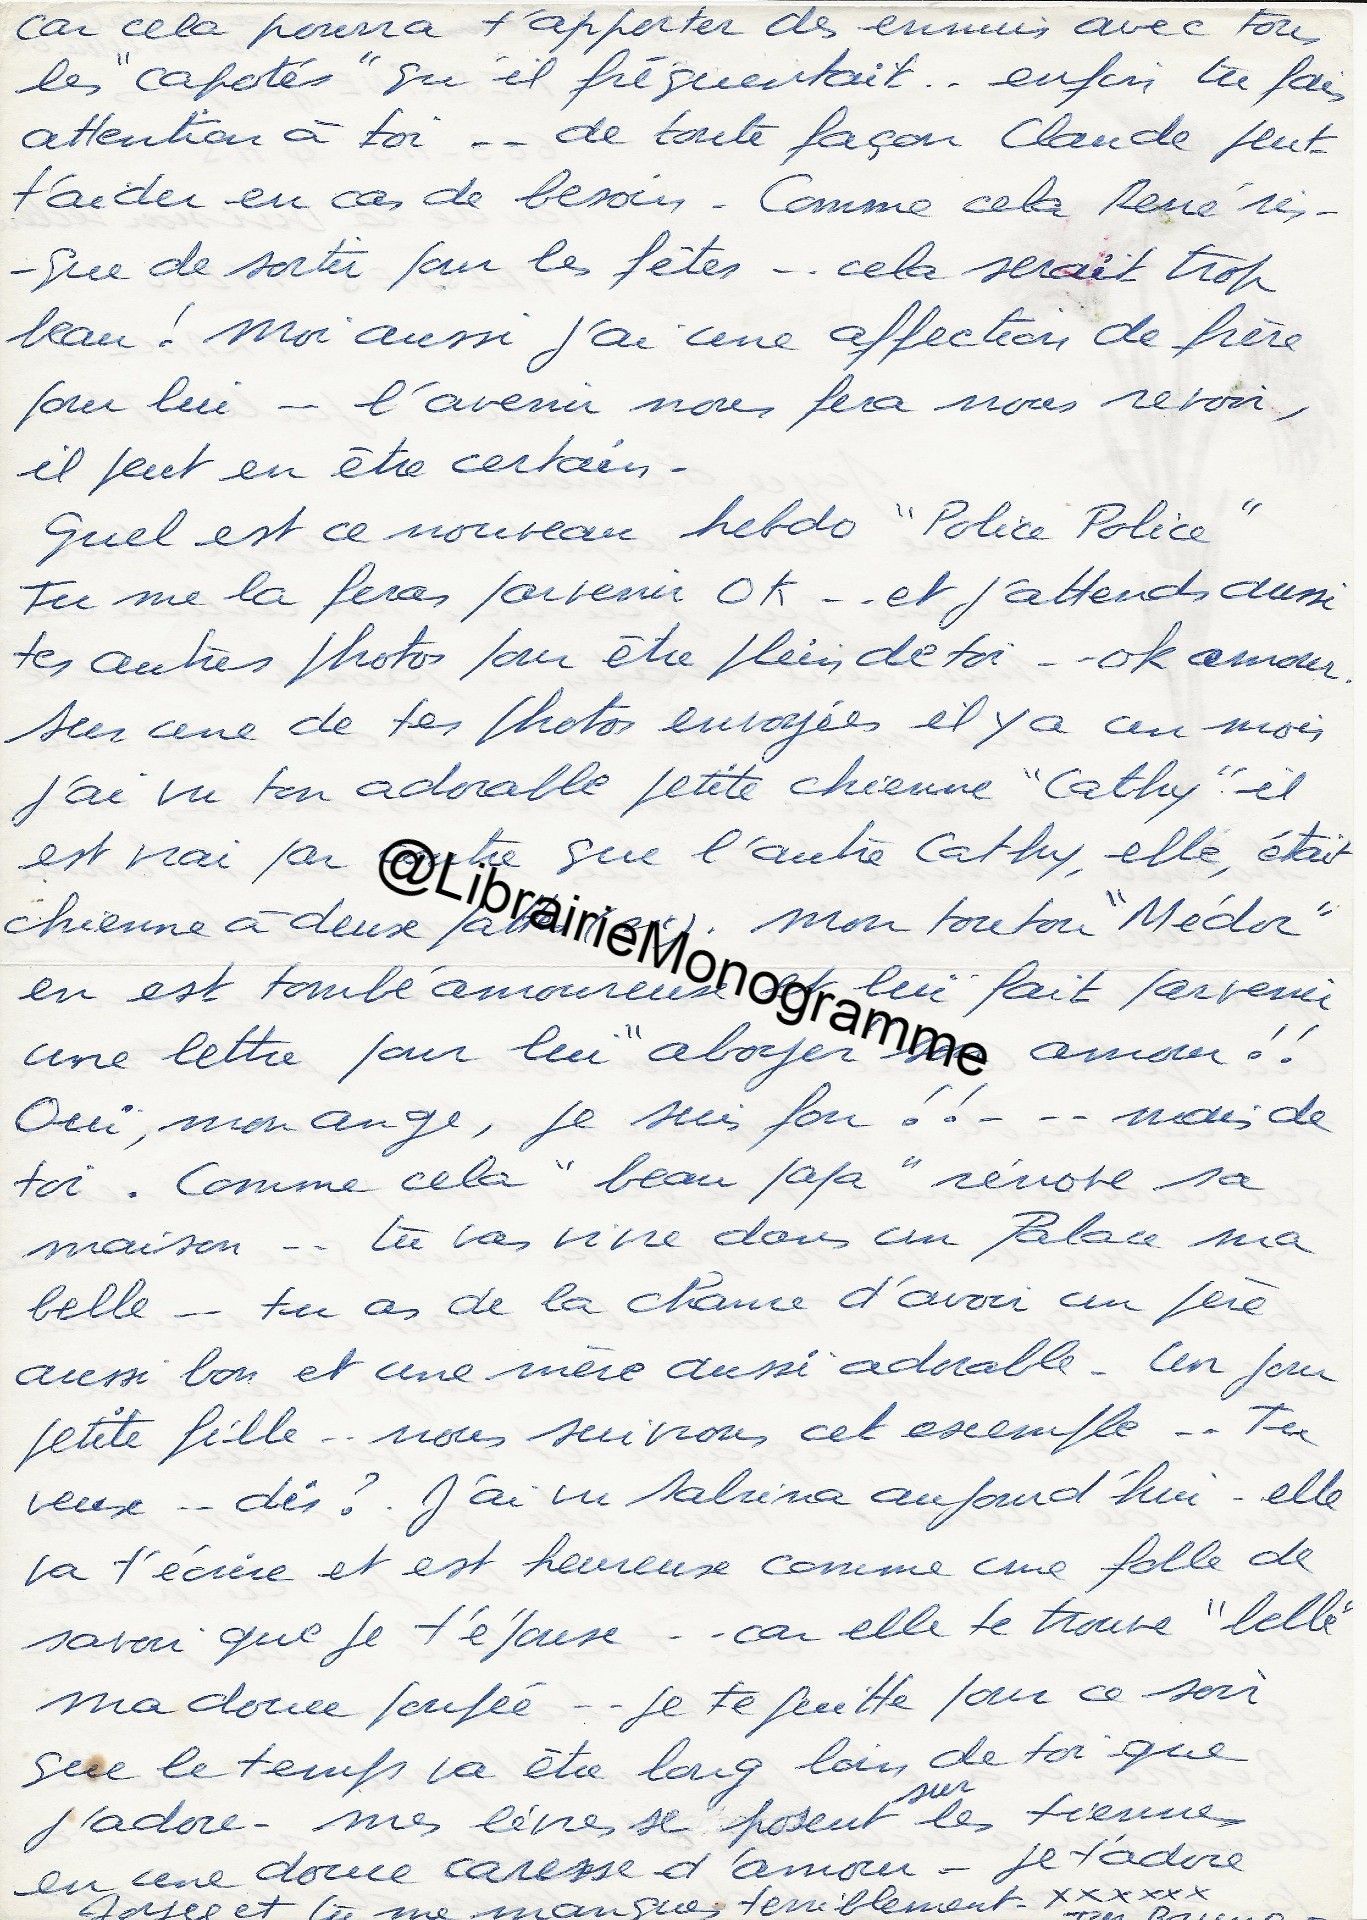 car cela pourra t'apporter des ennuis avec tous
les "capotés" qu'il fréquentait.. enfin tu fais
attention à toi -- de toute façon Claude peut-
t'aider en cas de besoin - Comme cela René ris-
-que de sortir pour les fêtes -.. cela serait trop
beau! Moi aussi j'ai une affection de frère
pour lui -- l'avenir nous fera nous revoir,
il peut en être certain -
Quel est ce nouveau hebdo "Police Police"
Tu me la feras parvenir OK -.. et j'attends aussi
tes autres photos pour être plein de toi -- ok amour.
Sur une de tes photos envoyées il y a un mois
j'ai vu ton adorable petite chienne "Cathy".. il
est vrai par contre que l'autre Cathy, elle, était
chienne à deux . Mon toutou "Médor"
en est tombé amoureux et lui fait parvenir
une lettre pour lui "aboyer amour!!
Oui, mon ange, je suis fou!! - -- mais de
toi . Comme cela "beau papa" rénove sa
maison -- tu vas vivre dans un Palace ma
belle -- tu as de la chance d'avoir un père
aussi bon et une mère aussi adorable - Un jour
petite fille -- nous suivrons cet exemple -- Tu
veux -- dis?. J'ai vu Sabrina aujourd'hui - elle
va t'écrire et est heureuse comme une folle de
savoir que je t'épouse -.. car elle te trouve "belle"
ma douce poupée -- je te quitte pour ce soir
que le temps va être long loin de toi que
j'adore - mes lèvres se posent sur les tiennes
en une douce caresse d'amour - je t'adore
et tu me manques terriblement - xxxxxx
Ton Bruno -
@LibrairieMonogramme